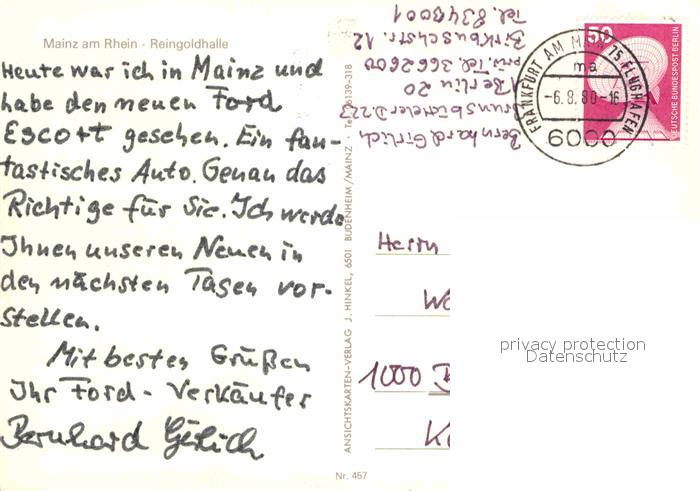 Mainz am Rhein - Reingoldhalle
Heute war ich in Mainz und
habe den neuen Ford
Escort gesehen. Ein fan-
tastisches Auto. Genau das
Richtige für Sie. Ich werde
Ihnen unseren Neuen in
den nächsten Tagen vor-
stellen.
Mit besten Grüßen
Ihr Ford - Verkäufer
Bernhard Girlich
ANSICHTSKARTEN-VERLAG J. HINKEL, 6501 BUDENHEIM/MAINZ
Nr. 457
Bernhard Girlich
D 223
1 Berlin 20
priv. Tel. 3662600
Birkbuschstr. 12
Tel. 8343001
FRANKFURT AM MAIN 75 FLUGHAFEN
ma
-6.8.80-16
6000
50
DEUTSCHE BUNDESPOST BERLIN
Herrn
1000
privacy protection
Datenschutz